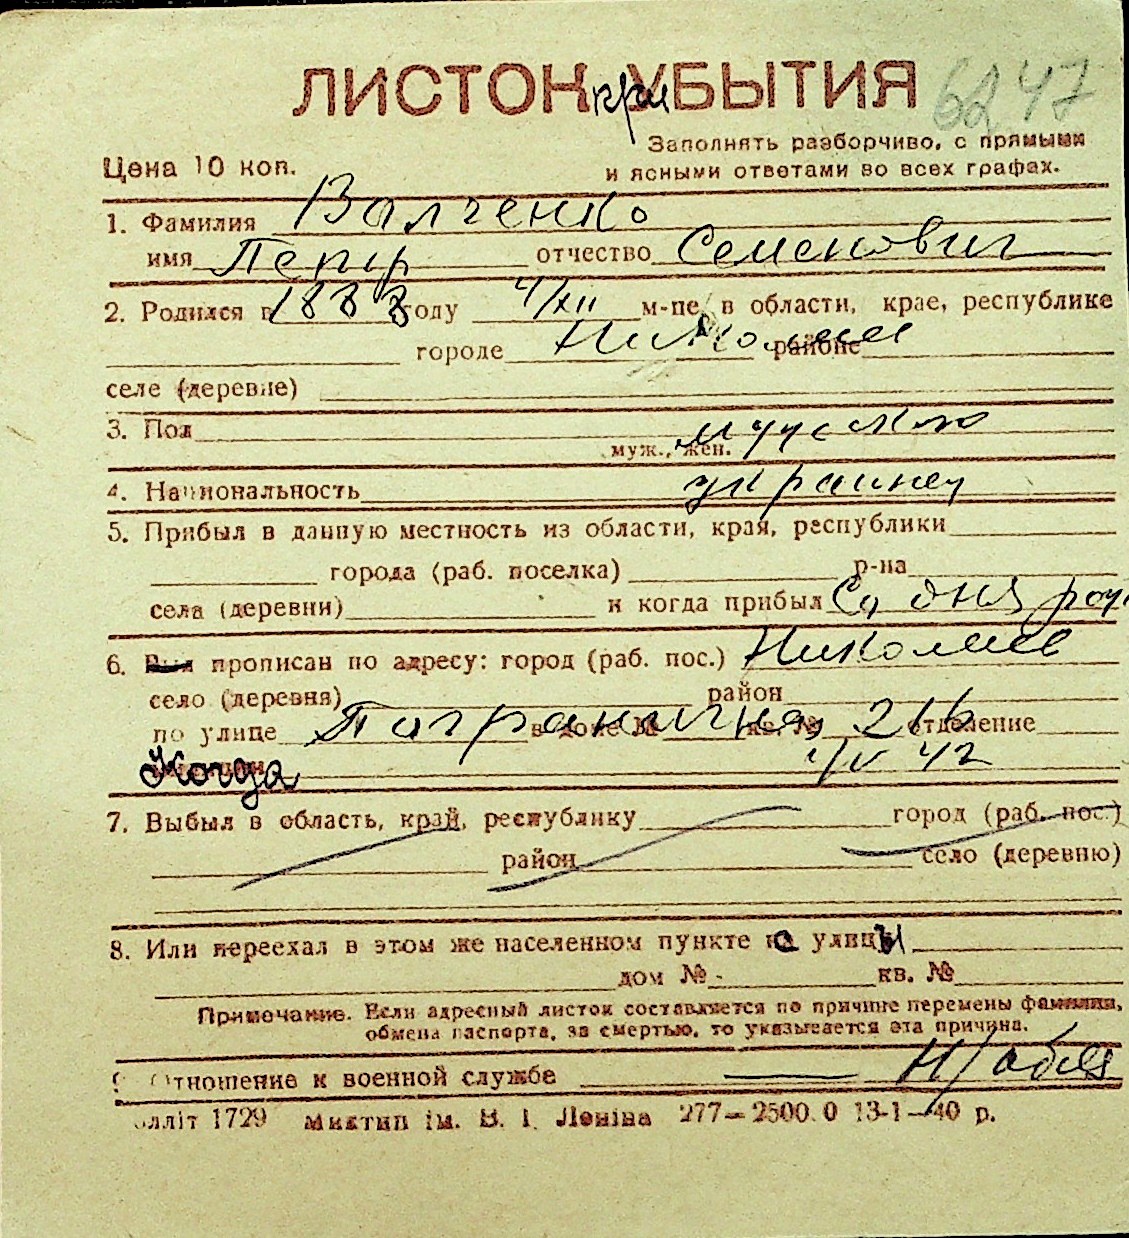 ЛИСТОК при УБЫТИЯ 6247
Заполнять разборчиво, с прямыми
Цена 10 коп. и ясными ответами во всех графах.
1. Фамилия Валченко
имя Петр отчество Семенович
2. Родился в 1883 году 4/XII м-це, в области, крае, республике
городе Николаев районе
селе (деревне)
3. Пол мужской
муж., жен.
4. Национальность украинец
5. Прибыл в данную местность из области, края, республики
города (раб. поселка) р-на
села (деревни) и когда прибыл Со дня рож
6. Был прописан по адресу: город (раб. пос.) Николаев
село (деревня) район
по улице Пограничная в доме № кв. № 216 отделение
Когда 1/IV 42
7. Выбыл в область, край, республику город (раб. пос.)
район село (деревню)
8. Или переехал в этом же населенном пункте на улицы
дом № кв. №
Примечание. Если адресный листок составляется по причине перемены фамилии,
обмена паспорта, за смертью, то указывается эта причина.
9. Отношение к военной службе — Н/обяз
облліт 1729 Миктип ім. В. І. Леніна 277—2500.0 13-1—40 р.